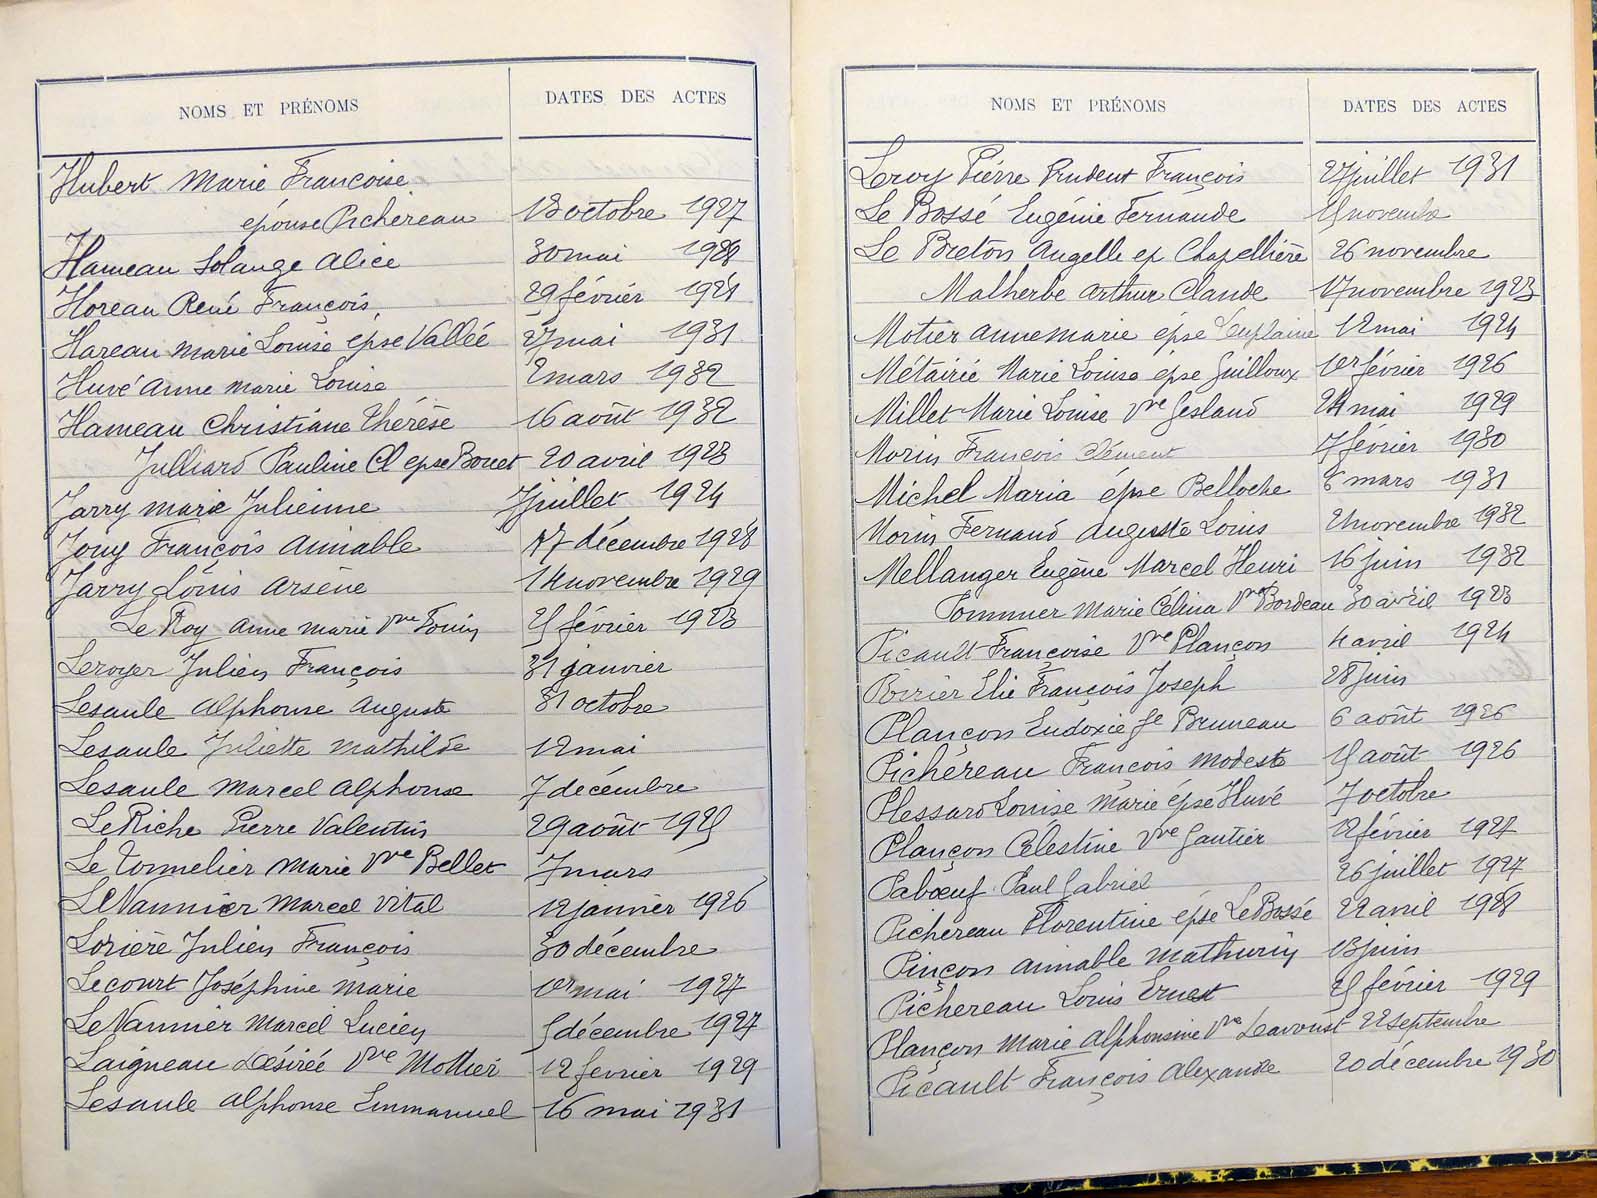 NOMS ET PRÉNOMS DATES DES ACTES
Hubert Marie Françoise
épouse Pichereau 18 octobre 1927
Hameau Solange Alice 30 mai 1928
Horeau René François, 29 février
Hareau Marie Louise epse Vallée 27 mai 1931
Huvé Anne Marie Louise 2 mars 1932
Hameau Christiane Thérèse 16 août 1932
Julliard Pauline Cl epse Bouet 20 avril 1923
Jarry Marie Julienne 7 juillet 1924
Jouy François Aimable 17 décembre 1928
Jarry Louis Arsène 14 novembre 1929
Le Roy Anne Marie Vve février 1923
Leroyer Julien François 31 janvier
Lesaule Alphonse Auguste 31 octobre
Lesaule Juliette Mathilde 12 mai
Lesaule Marcel Alphonse 7 décembre
Le Riche Pierre Valentin 29 août 1925
Le Tonnelier Marie Vve Bellet 7 mars
Le Vannier Marcel Vital 12 janvier 1926
Lorière Julien François 30 décembre
Lecourt Joséphine Marie 1er mai 1927
Le Vannier Marcel Lucien 5 décembre 1927
Laigneau Désirée Vve Mottier 12 fevrier 1929
Lesaule Alphonse Emmanuel 16 mai 1931
NOMS ET PRÉNOMS DATES DES ACTES
Leroy Pierre Prudent François 27 juillet 1931
Le Bossé Eugénie Fernande novembre
Le Breton Angelle ep Chapellière 26 novembre
Malherbe Arthur Claude 17 novembre 1923
Motier Anne Marie épse 12 mai 1924
Métairié Marie Louise épse Guilloux 1er février 1926
Millet Marie Louise Vve Gesland 24 mai 1929
Morin François Clément 7 février 1930
Michel Maria épse Belloche 8 mars 1931
Morin Fernand Auguste Louis novembre 1932
Mellanger Eugène Marcel Henri 16 juin 1932
Pommier Marie Célina Vve Bordeau 30 avril 1923
Picault Françoise Vve Plançon 4 avril 1924
Poirier Elie François Joseph 28 juin
Plançon Eudoxie fe Bruneau 6 août 1926
Pichereau François Modeste août 1926
Plessard Louise Marie épse Huvé 7 octobre
Plançon Célestine Vve Gautier 12 février 1927
Pabœuf Paul Gabriel 26 juillet 1927
Pichereau Florentine épse Le Bossé 22 avril 1928
Pinçon Aimable Mathurin 13 juin
Pichereau Louis Ernest février 1929
Plançon Marie Alphonsine Vve Davoust 22 septembre
Picault François Alexandre 20 décembre 1930